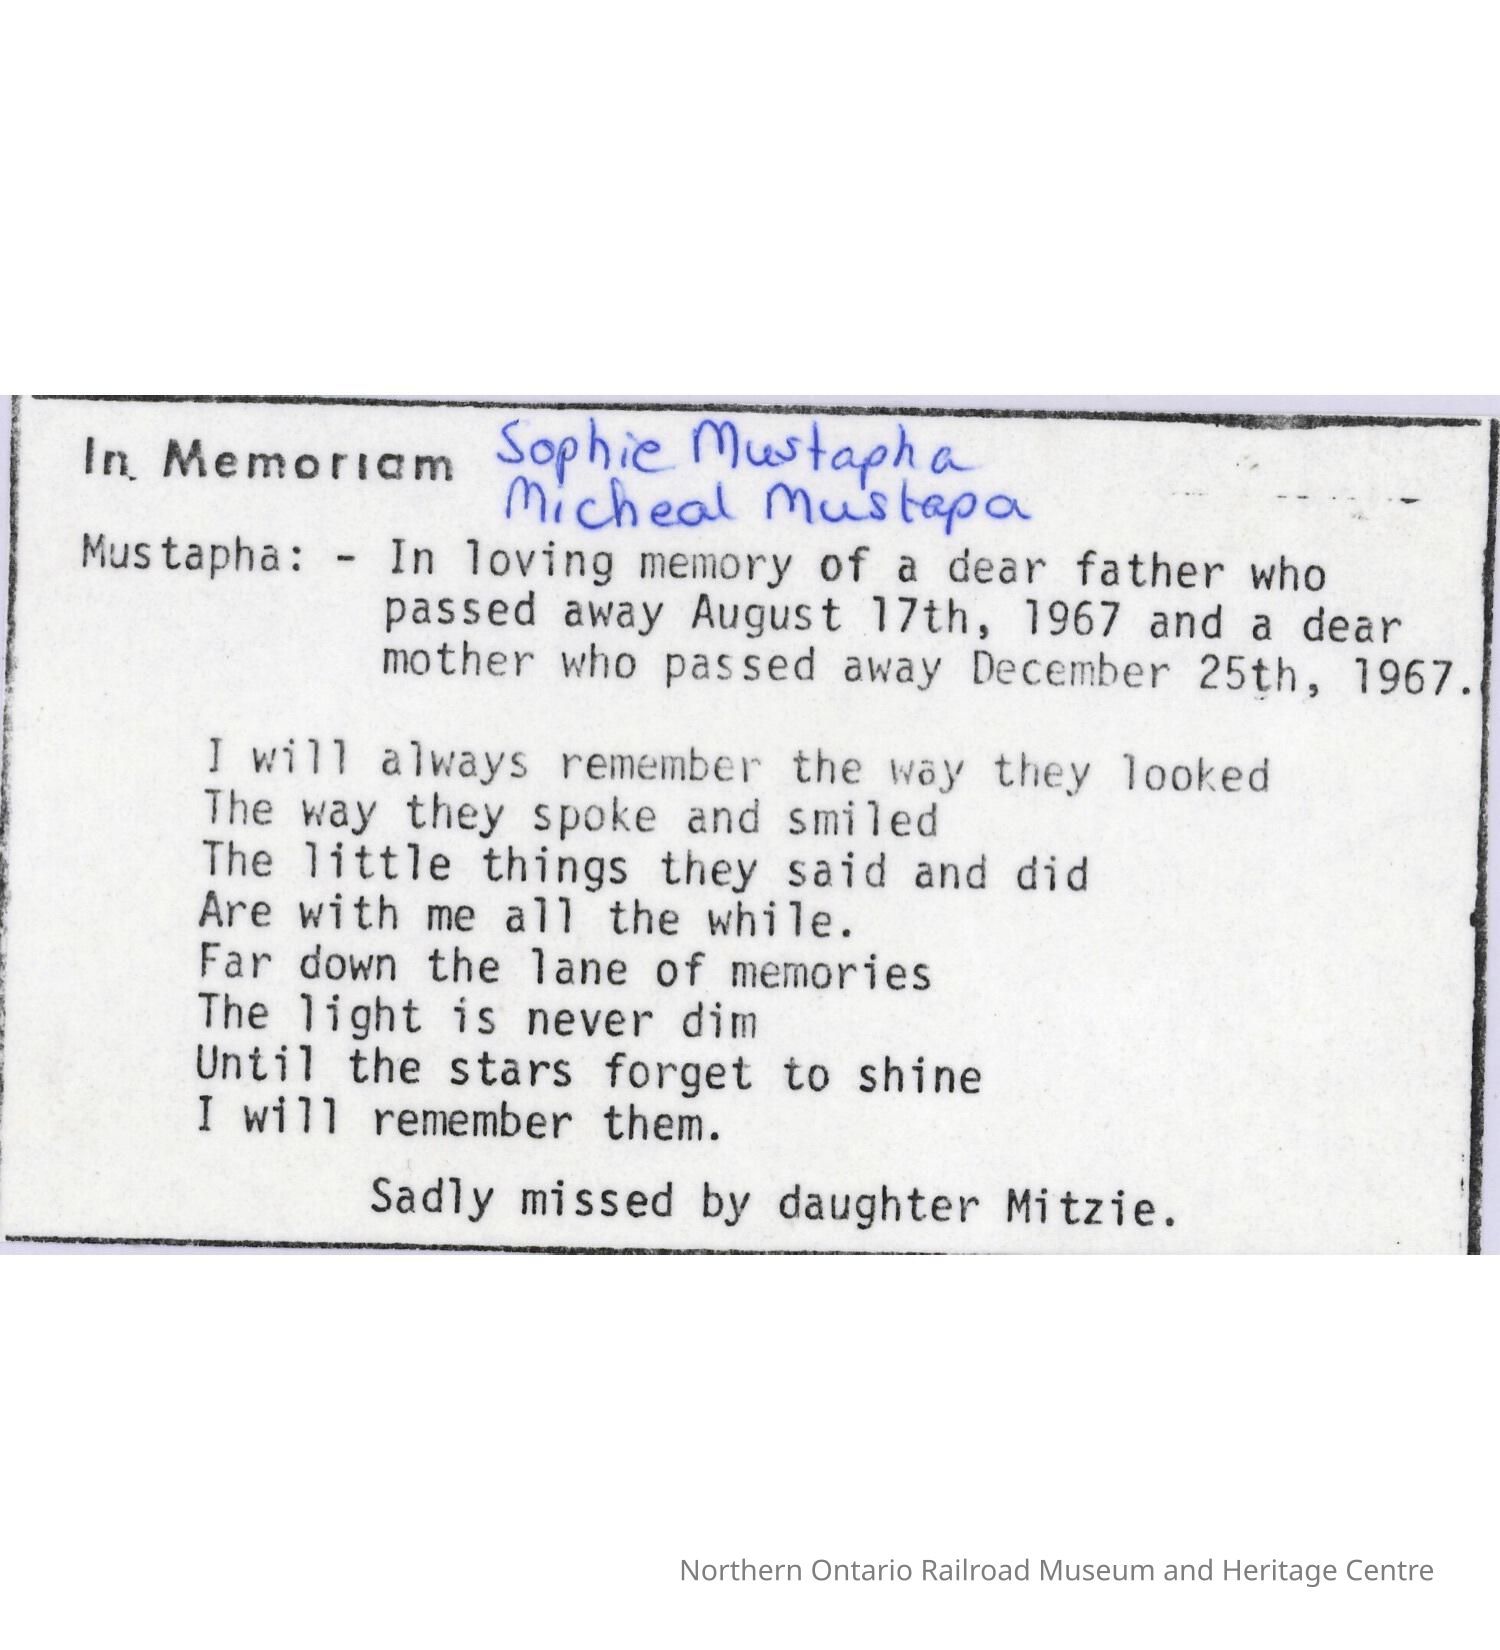 In Memoriam Sophie Mustapha
Micheal Mustapa
Mustapha: - In loving memory of a dear father who
passed away August 17th, 1967 and a dear
mother who passed away December 25th, 1967.
I will always remember the way they looked
The way they spoke and smiled
The little things they said and did
Are with me all the while.
Far down the lane of memories
The light is never dim
Until the stars forget to shine
I will remember them.
Sadly missed by daughter Mitzie.
Northern Ontario Railroad Museum and Heritage Centre